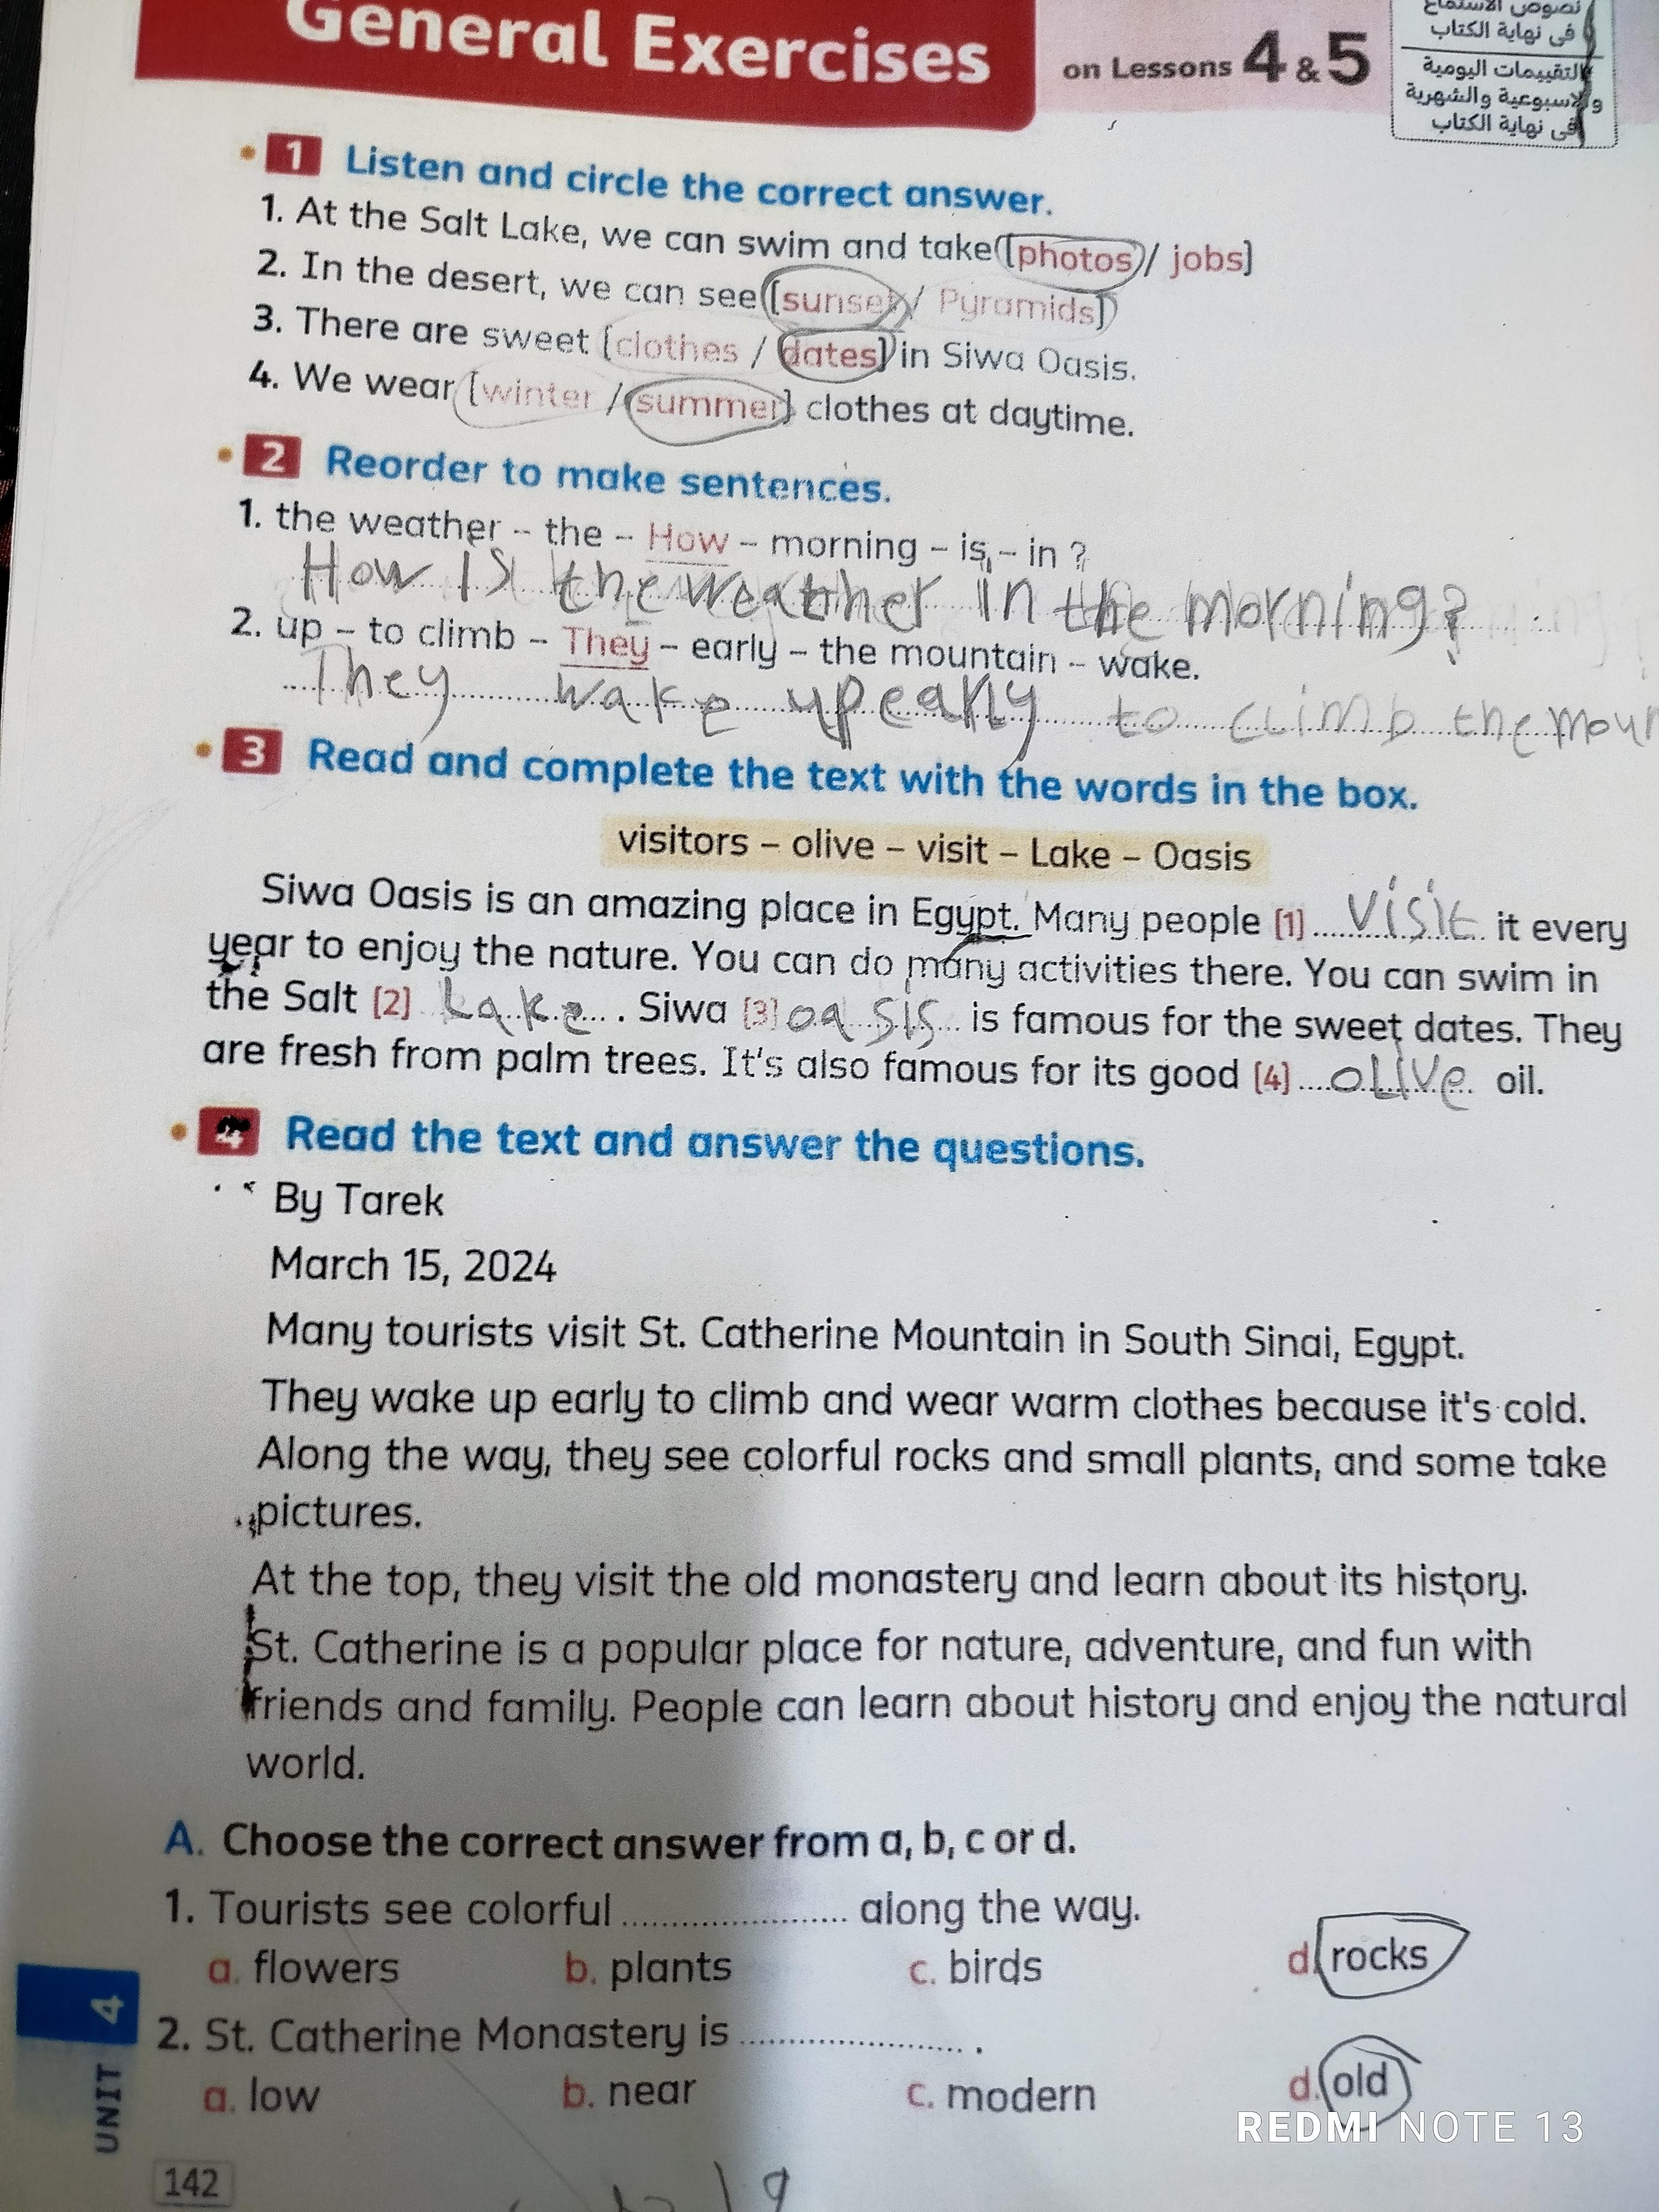 General Exercises
on Lessons 4 & 5
نصوص الاستماع
فى نهاية الكتاب
التقييمات اليومية
والأسبوعية والشهرية
فى نهاية الكتاب
1 Listen and circle the correct answer.
1. At the Salt Lake, we can swim and take [photos / jobs]
2. In the desert, we can see [sunset / Pyramids]
3. There are sweet [clothes / dates] in Siwa Oasis.
4. We wear [winter / summer] clothes at daytime.
2 Reorder to make sentences.
1. the weather – the – How – morning – is – in ?
How is the weather in the morning?
2. up – to climb – They – early – the mountain – wake.
They wake up early to climb the moun
3 Read and complete the text with the words in the box.
visitors – olive – visit – Lake – Oasis
Siwa Oasis is an amazing place in Egypt. Many people [1] visit it every
year to enjoy the nature. You can do many activities there. You can swim in
the Salt [2] Lake. Siwa [3] oasis is famous for the sweet dates. They
are fresh from palm trees. It's also famous for its good [4] olive oil.
4 Read the text and answer the questions.
By Tarek
March 15, 2024
Many tourists visit St. Catherine Mountain in South Sinai, Egypt.
They wake up early to climb and wear warm clothes because it's cold.
Along the way, they see colorful rocks and small plants, and some take
pictures.
At the top, they visit the old monastery and learn about its history.
St. Catherine is a popular place for nature, adventure, and fun with
friends and family. People can learn about history and enjoy the natural
world.
A. Choose the correct answer from a, b, c or d.
1. Tourists see colorful .................... along the way.
a. flowers b. plants c. birds d. rocks
2. St. Catherine Monastery is .................... .
a. low b. near c. modern d. old
UNIT 4
142
REDMI NOTE 13